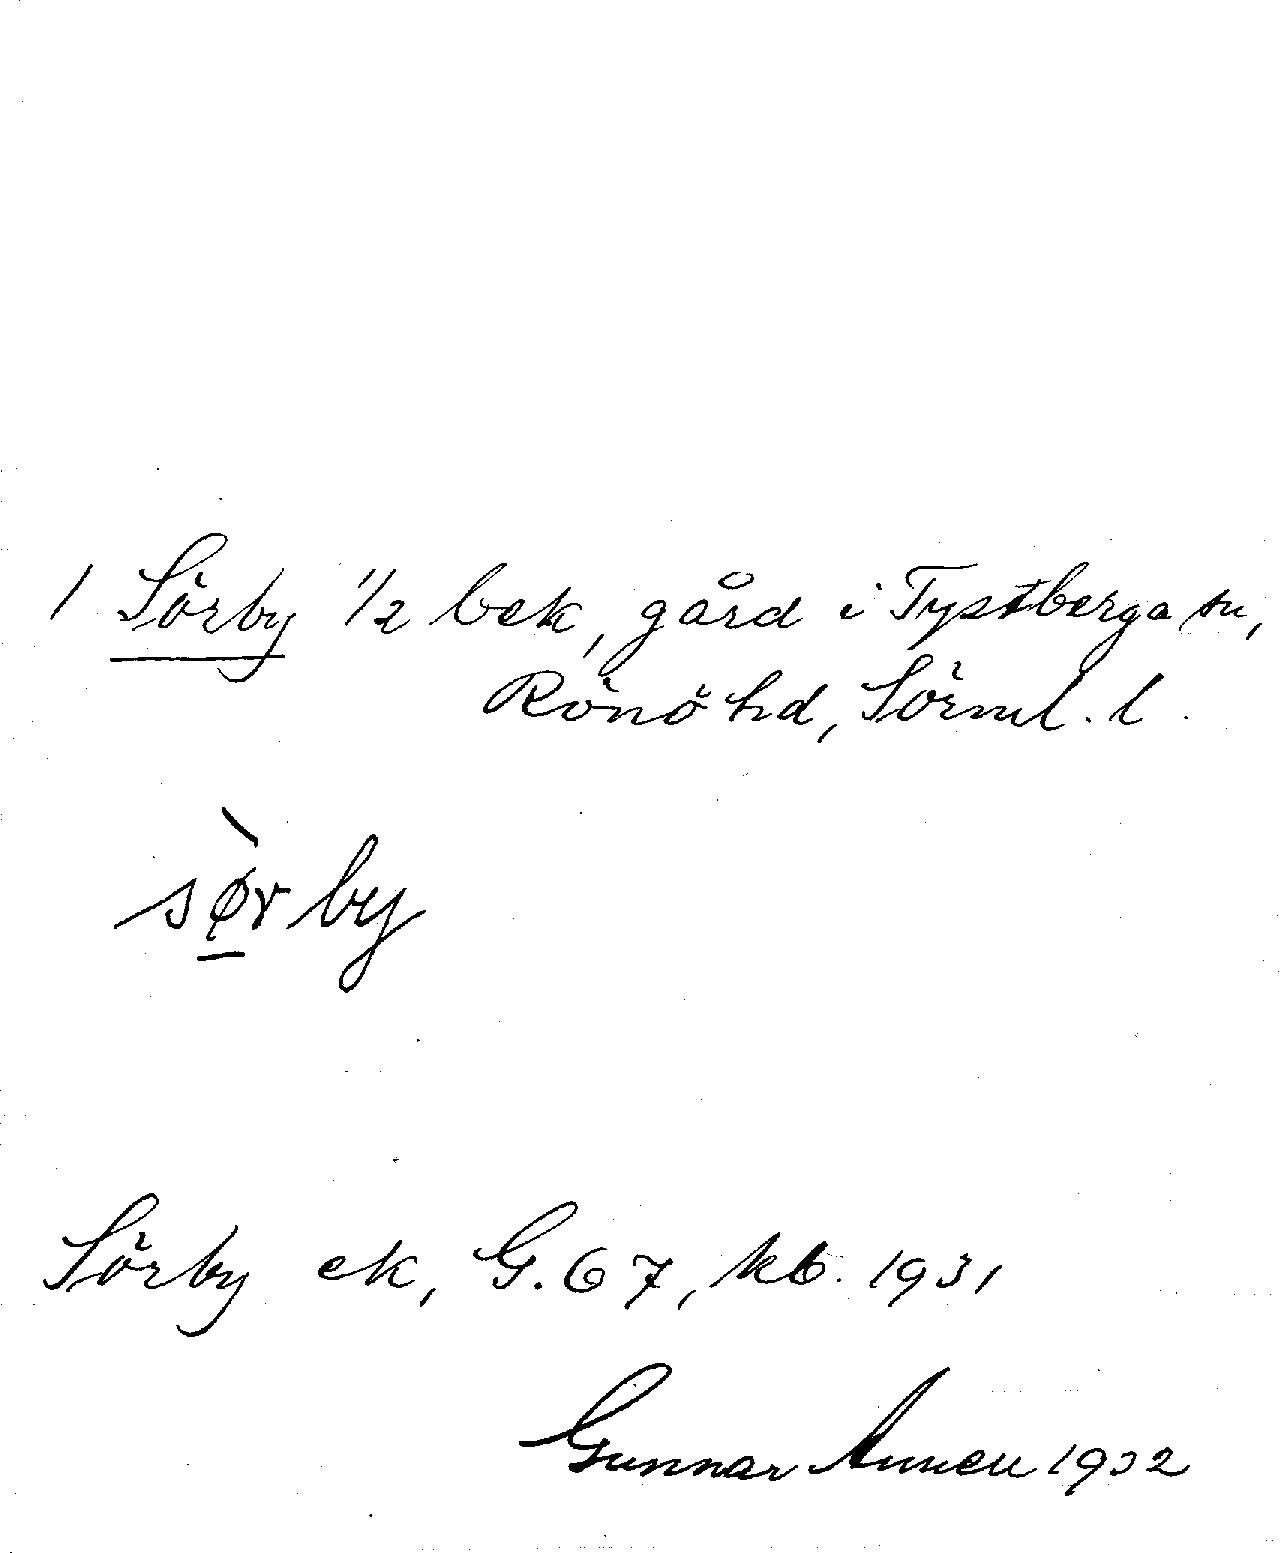 1 Sörby 1/2 bek, gård i Tystberga sn,
Rönö hd, Sörml. l.
sø̠̀rby
Sörby ek, G. 67, kb. 1931
Gunnar 1932